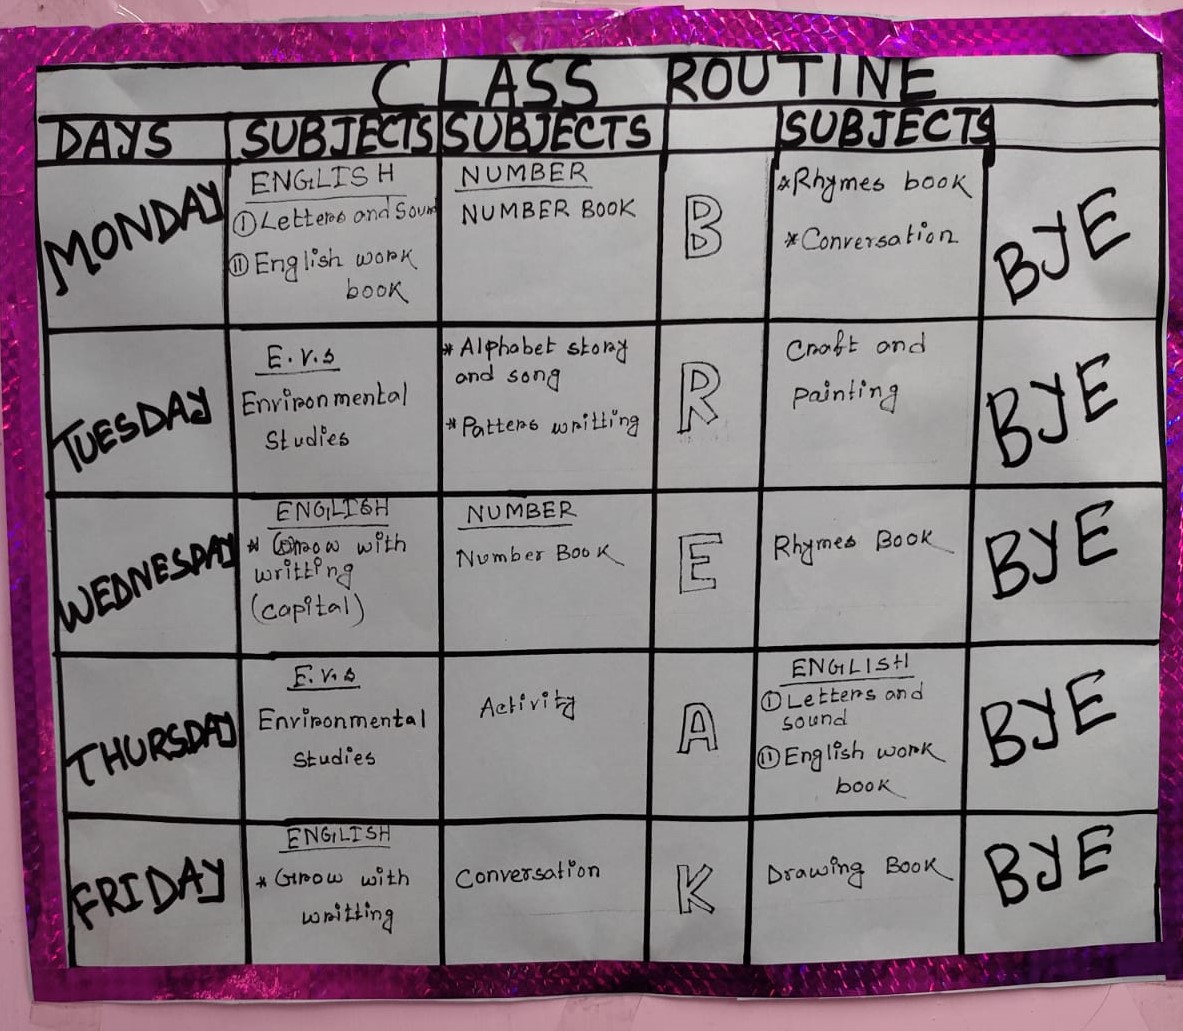 CLASS ROUTINE
DAYS SUBJECTS SUBJECTS SUBJECTS
MONDAY
ENGLISH
(i) Letters and Sound
(ii) English work
book
NUMBER
NUMBER BOOK
B
*Rhymes book
*Conversation
BYE
TUESDAY
E.V.S
Environmental
Studies
* Alphabet story
and song
*Patters writting
R
Craft and
painting
BYE
WEDNESDAY
ENGLISH
* Grow with
writting
(capital)
NUMBER
Number Book
E
Rhymes Book
BYE
THURSDAY
E.V.S
Environmental
Studies
Activity
A
ENGLISH
(i) Letters and
sound
(ii) English work
book
BYE
FRIDAY
ENGLISH
* Grow with
writting
Conversation
K
Drawing Book
BYE